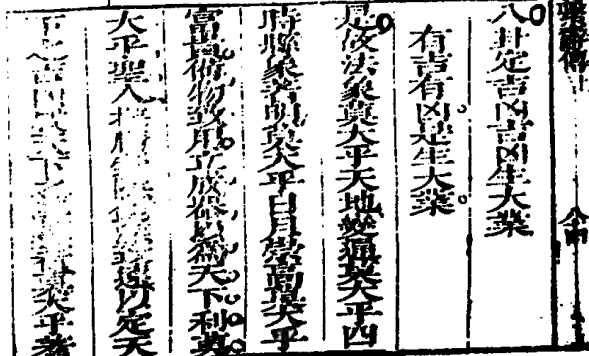 繫辭傳
八卦定吉凶吉凶生大業
有吉有凶是生大業
是故法象莫大乎天地變通莫大乎四
時縣象著明莫大乎日月崇高莫大乎
富貴備物致用立成器以爲天下利莫
大乎聖人探賾索隱鉤深致遠以定天
下之吉凶成天下之亹亹者莫大乎蓍